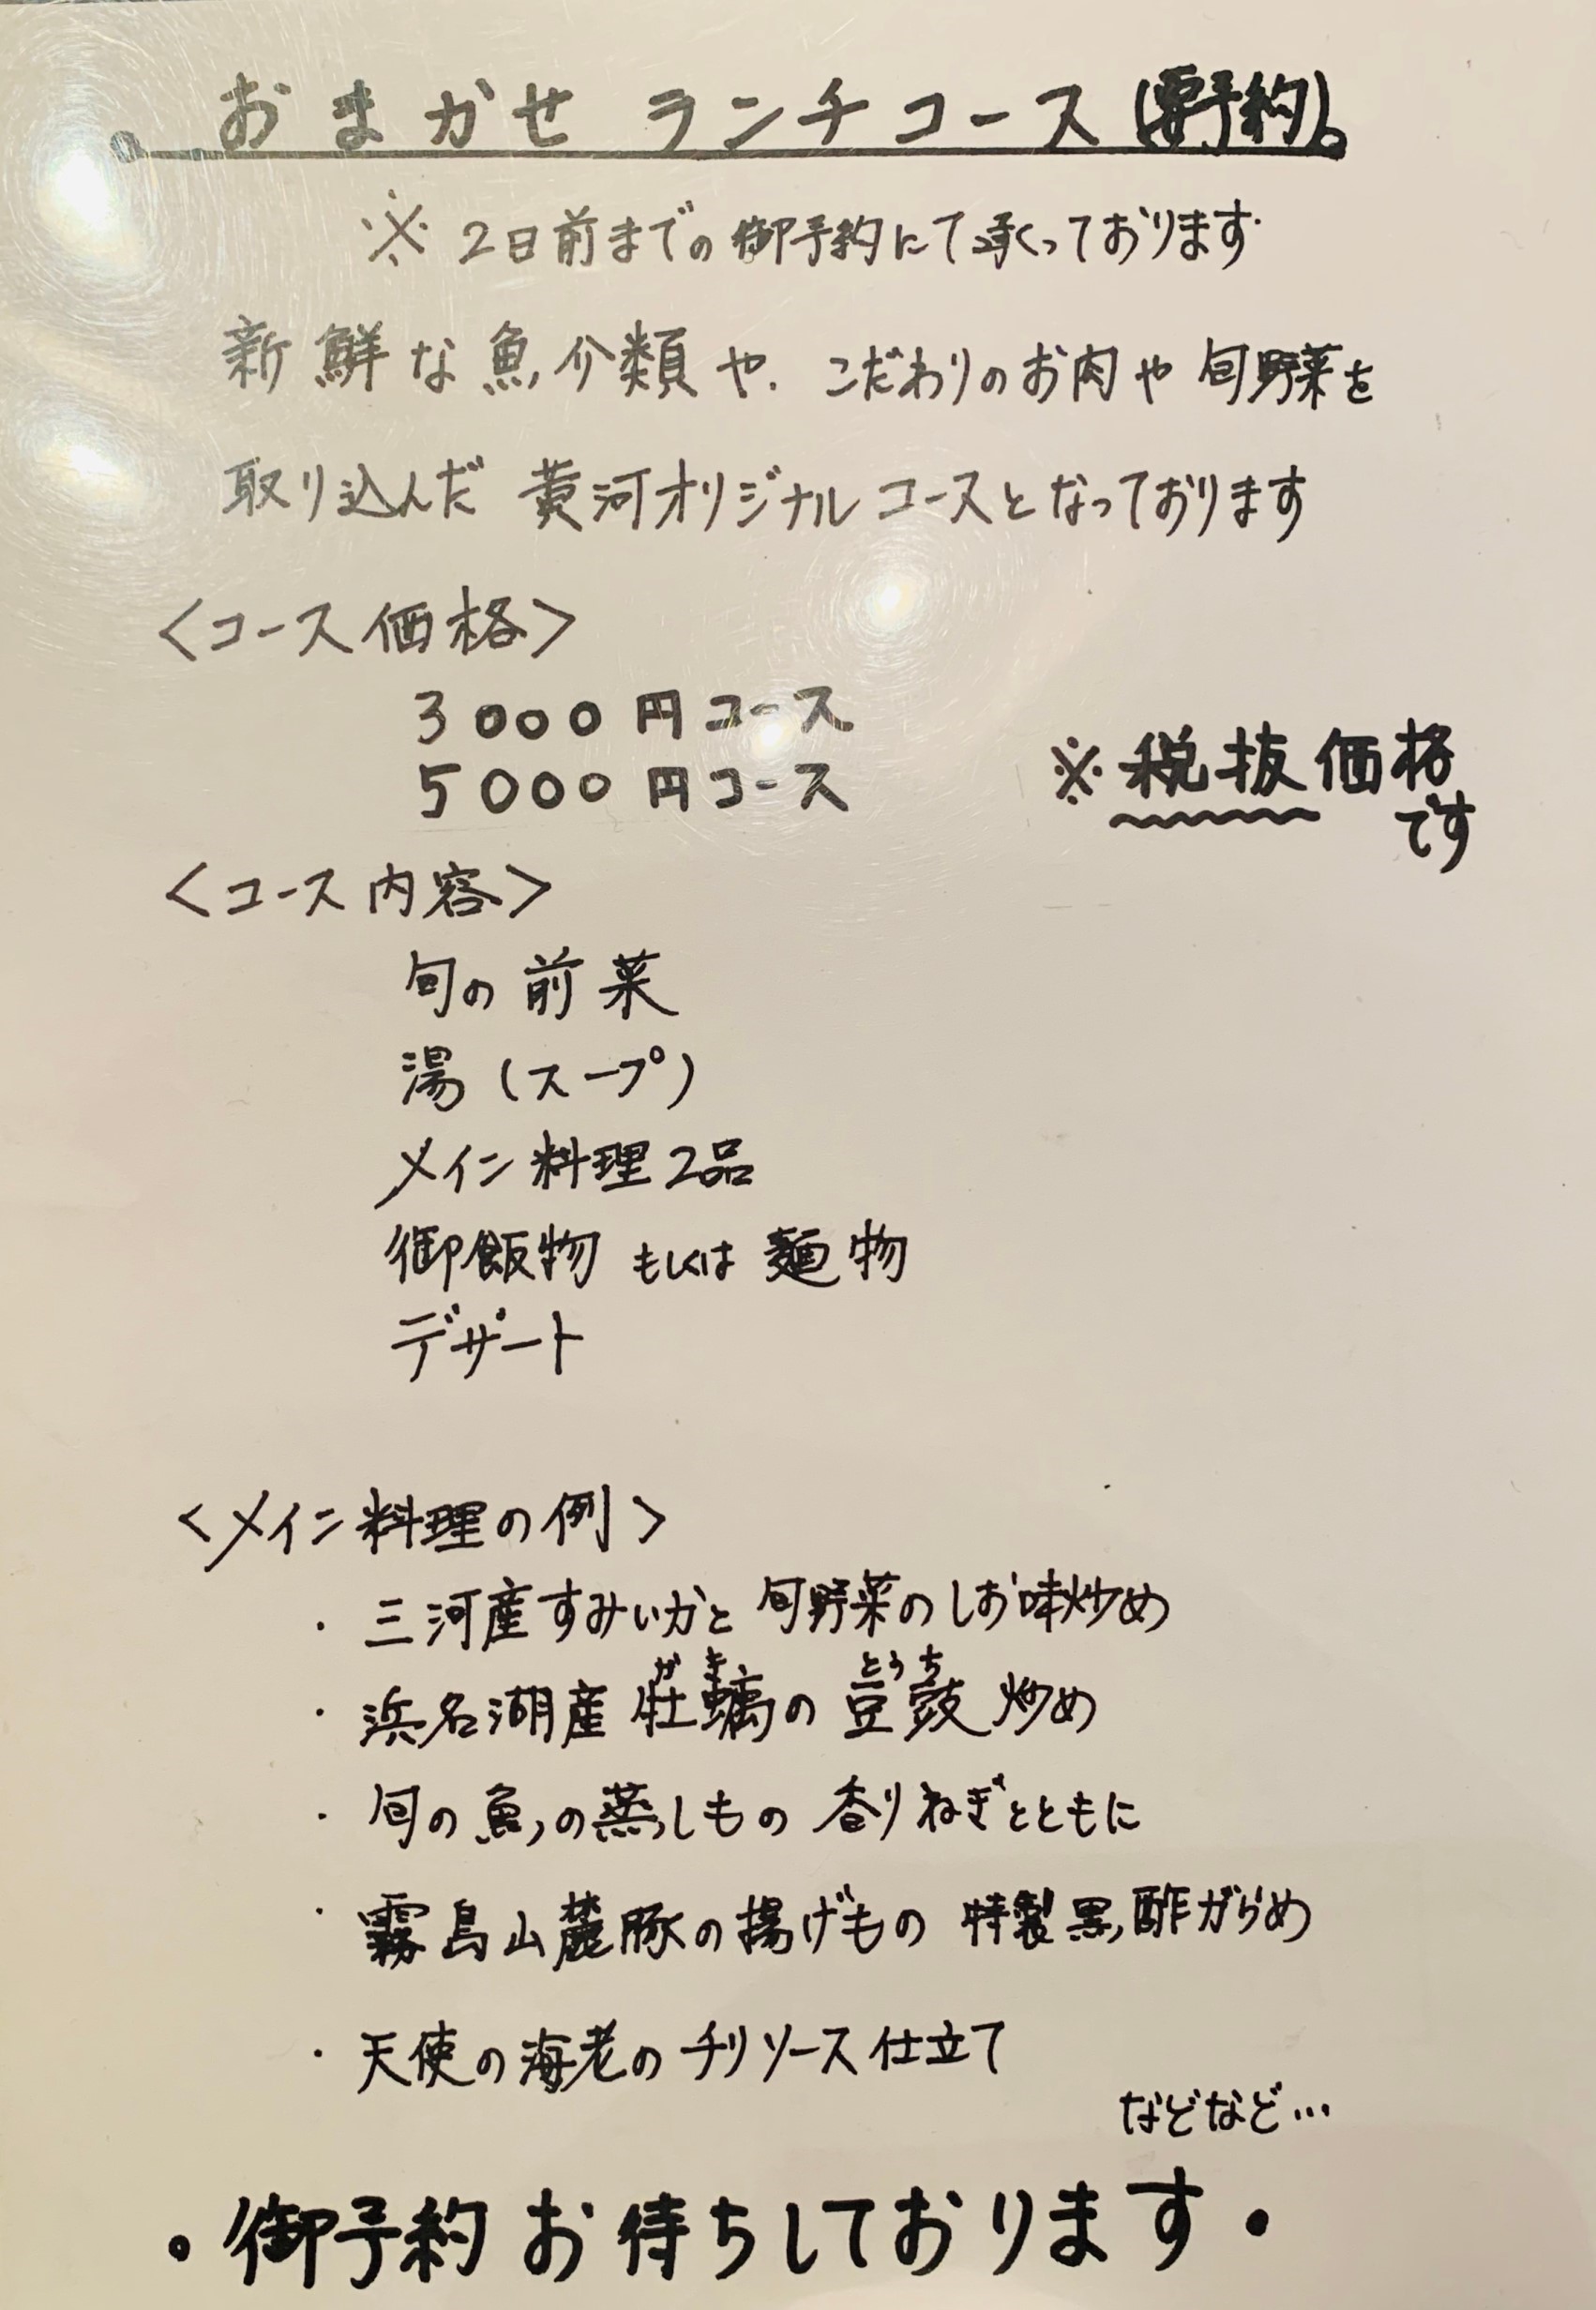 おまかせ ランチコース(要予約)
※ 2日前までの御予約にて承くっております
新鮮な魚介類や、こだわりのお肉や旬野菜を
取り込んだ 黄河オリジナルコースとなっております
<コース価格>
3000円コース
5000円コース
※税抜価格
です
<コース内容>
旬の前菜
湯(スープ)
メイン料理2品
御飯物 もしくは 麺物
デザート
<メイン料理の例>
・三河産すみいかと旬野菜のしお味炒め
・浜名湖産牡蠣の豆鼓炒め
がき とうち
・旬の魚の蒸しもの 香りねぎとともに
・霧島山麓豚の揚げもの 特製黒酢がらめ
・天使の海老のチリソース仕立て
などなど…
・御予約お待ちしております・